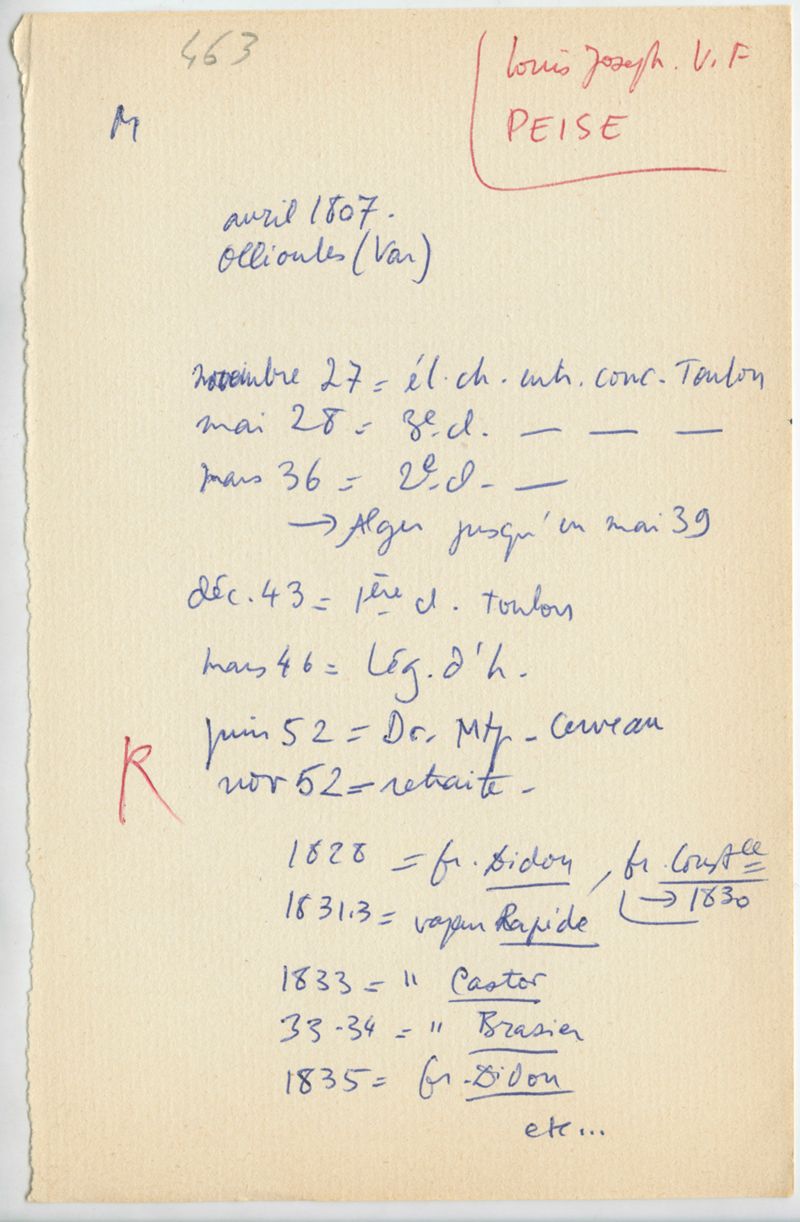 463
Louis Joseph. V. F
PEISE
M
avril 1807.
Ollioules (Var)
novembre 27 = él. ch. entr. conc. Toulon
mai 28 = 3e cl. — — —
mars 36 = 2e cl - —
→ Alger jusqu'en mai 39
déc. 43 = 1ère cl. Toulon
mars 46 = Lég. d'h.
juin 52 = Dr. Mtp - Cerveau
R
nov 52 = retraite -
1828 = fr. Didon, fr. Constce
→ 1830
1831.3 = vapeur Rapide
1833 = " Castor
33-34 = " Brasier
1835 = fr. Didon
etc...